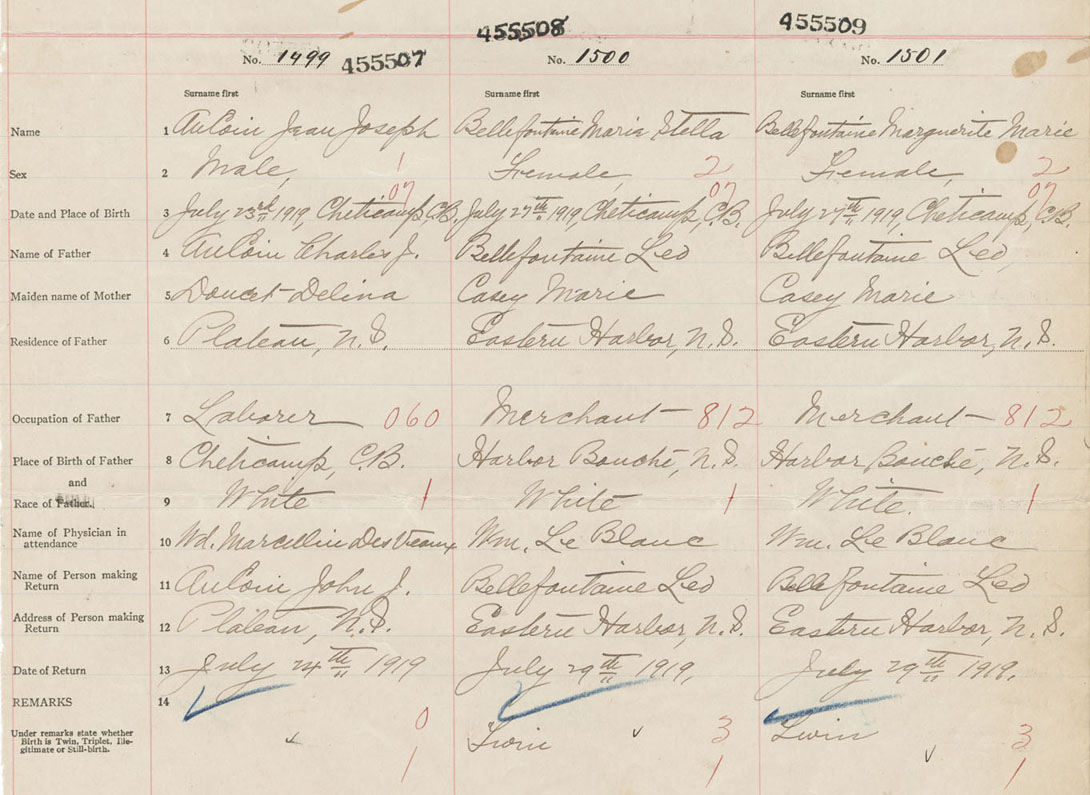 455508 455509
No. 1499 455507 No. 1500 No. 1501
Surname first Surname first Surname first
Name 1 AuCoin Jean Joseph Bellefontaine Maria Stella Bellefontaine Marguerite Marie
Sex 2 Male, 1 Female, 2 Female, 2
07 07 07
Date and Place of Birth 3 July 23rd 1919, Cheticamp, C.B. July 27th 1919, Cheticamp, C.B. July 27th 1919, Cheticamp, C.B.
Name of Father 4 AuCoin Charles J. Bellefontaine Leo Bellefontaine Leo,
Maiden name of Mother 5 Doucet Delina Casey Marie Casey Marie
Residence of Father 6 Plateau, N.S. Eastern Harbor, N.S. Eastern Harbor, N.S.
Occupation of Father 7 Laborer 060 Merchant 812 Merchant 812
Place of Birth of Father 8 Cheticamp, C.B. Harbor Bouché, N.S. Harbor Bouché, N.S.
and
Race of Father. 9 White 1 White 1 White. 1
Name of Physician in
attendance 10 Wd. Marcelline DesVeaux Wm. Le Blanc Wm. Le Blanc
Name of Person making
Return 11 AuCoin John J. Bellefontaine Leo Bellefontaine Leo
Address of Person making
Return 12 Plateau, N.S. Eastern Harbor, N.S. Eastern Harbor, N.S.
Date of Return 13 July 24th 1919 July 29th 1919, July 29th 1919.
REMARKS 14
Under remarks state whether
Birth is Twin, Triplet, Ille-
gitimate or Still-birth. 0 Twin 3 Twin 3
1 1 1